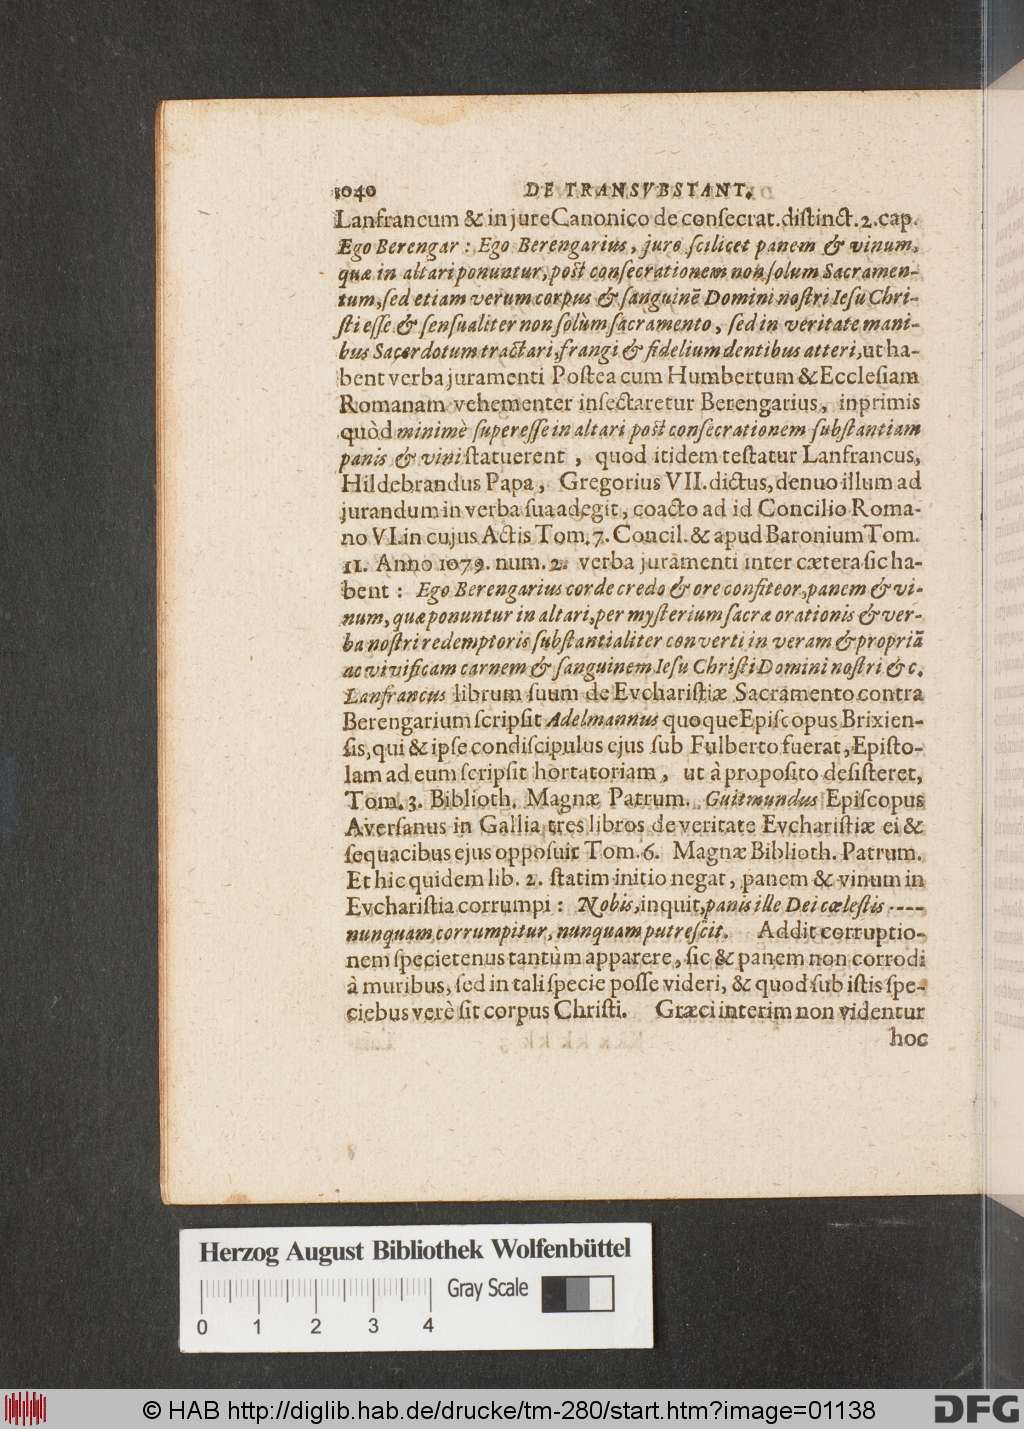 1040 DE TRANSVBSTANT.
Lanfrancum & in jure Canonico de conſecrat. diſtinct. 2. cap.
Ego Berengar: Ego Berengarius, juro ſcilicet panem & vinum,
quæ in altari ponuntur, poſt conſecrationem non ſolum Sacramen-
tum, ſed etiam verum corpus & ſanguinē Domini noſtri Ieſu Chri-
ſti eſſe & ſenſualiter non ſolùm ſacramento, ſed in veritate mani-
bus Sacerdotum tractari, frangi & fidelium dentibus atteri, ut ha-
bent verba juramenti Poſtea cum Humbertum & Eccleſiam
Romanam vehementer inſectaretur Berengarius, inprimis
quòd minimè ſupereſſe in altari poſt conſecrationem ſubſtantiam
panis & vini ſtatuerent, quod itidem teſtatur Lanfrancus,
Hildebrandus Papa, Gregorius VII. dictus, denuo illum ad
jurandum in verba ſua adegit, coacto ad id Concilio Roma-
no VI. in cujus Actis Tom. 7. Concil. & apud Baronium Tom.
11. Anno 1079. num. 2. verba juramenti inter cætera ſic ha-
bent: Ego Berengarius corde credo & ore confiteor, panem & vi-
num, quæ ponuntur in altari, per myſterium ſacræ orationis & ver-
ba noſtri redemptoris ſubſtantialiter converti in veram & propriā
ac vivificam carnem & ſanguinem Ieſu Chriſti Domini noſtri & c.
Lanfrancus librum ſuum de Evchariſtiæ Sacramento contra
Berengarium ſcripſit Adelmannus quoque Epiſcopus Brixien-
ſis, qui & ipſe condiſcipulus ejus ſub Fulberto fuerat, Epiſto-
lam ad eum ſcripſit hortatoriam, ut à propoſito deſiſteret,
Tom. 3. Biblioth. Magnæ Patrum. Guitmundus Epiſcopus
Averſanus in Gallia tres libros de veritate Evchariſtiæ ei &
ſequacibus ejus oppoſuit Tom. 6. Magnæ Biblioth. Patrum.
Et hic quidem lib. 2. ſtatim initio negat, panem & vinum in
Evchariſtia corrumpi: Nobis, inquit, panis ille Dei cæleſtis ----
nunquam corrumpitur, nunquam putreſcit. Addit corruptio-
nem ſpecietenus tantùm apparere, ſic & panem non corrodi
à muribus, ſed in tali ſpecie poſſe videri, & quod ſub iſtis ſpe-
ciebus verè ſit corpus Chriſti. Græci interim non videntur
hoc
Herzog August Bibliothek Wolfenbüttel
Gray Scale
0 1 2 3 4
© HAB http://diglib.hab.de/drucke/tm-280/start.htm?image=01138
DFG